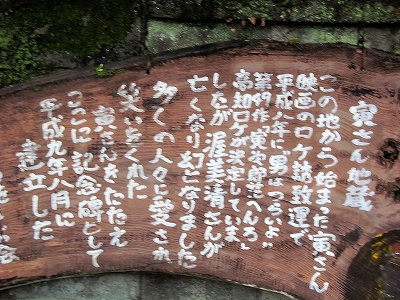 寅さん地蔵
この地から始まった寅さん
映画のロケ誘致運で
平成八年に、男はつらいよ〟
第49作〝寅次郎花へんろ〟
高知ロケが決定していま
したが渥美清さんが
亡くなり幻となりました
多くの人々に愛され
笑いをくれた
寅さんをたたえ
ここに記念碑として
平成九年八月に
建立した